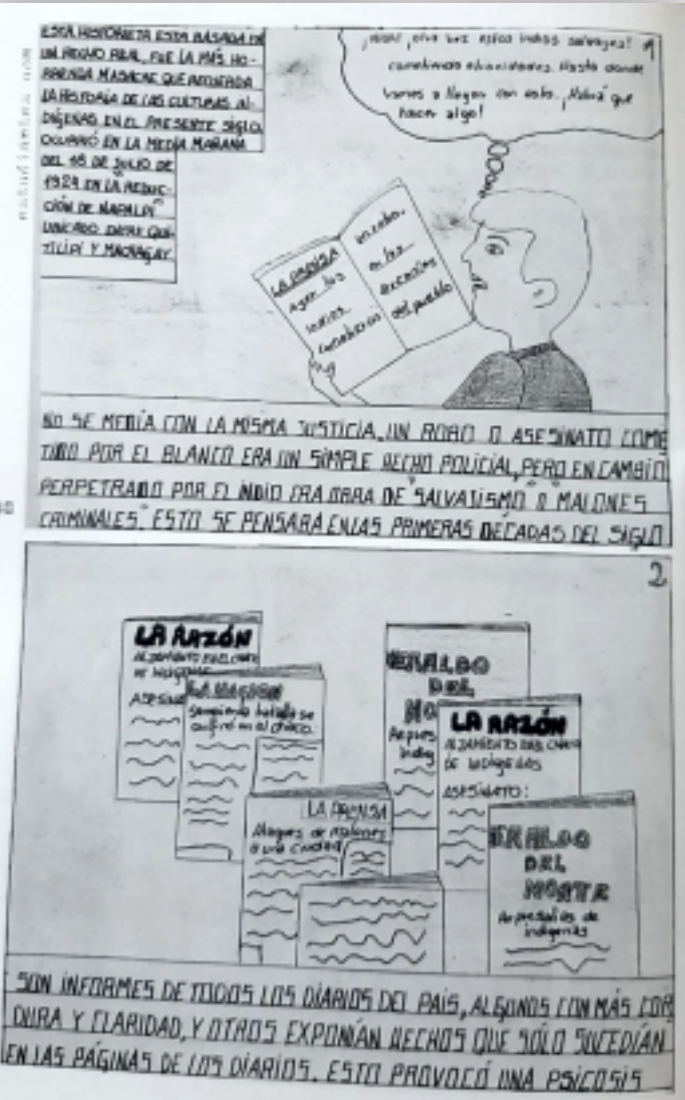 ESTA HISTORIETA ESTA BASADA EN
UN HECHO REAL, FUE LA MÁS HO-
RRENDA MASACRE QUE RECUERDA
LA HISTORIA DE LAS CULTURAS IN-
DÍGENAS EN EL PRESENTE SIGLO,
OCURRIÓ EN LA MEDIA MAÑANA
DEL 18 DE JULIO DE
1924 EN LA "REDUC-
CIÓN DE NAPALPÍ"
UBICADO ENTRE QUI-
TILIPI Y MACHAGAY
otra vez estos indios salvajes!
cometiendo atrocidades. Hasta donde
vamos a llegar con esto. ¡Habrá que
hacer algo!
LA PRENSA
Ayer los
indios
cometieron
un robo.
en las
del pueblo
NO SE MEDÍA CON LA MISMA JUSTICIA, UN ROBO O ASESINATO COME
TIDO POR EL BLANCO ERA UN SIMPLE HECHO POLICIAL, PERO EN CAMBIO
PERPETRADO POR EL INDIO ERA OBRA DE "SALVATISMO" O "MALONES
CRIMINALES." ESTO SE PENSARÁ EN LAS PRIMERAS DÉCADAS DEL SIGLO
2
LA RAZÓN
ALZAMIENTO EN EL CHACO
DE INDÍGENAS
LA NACION
Sangrienta batalla se
en el chaco.
LA PRENSA
Ataques de malones
a una ciudad
HERALDO
DEL
LA RAZÓN
ALZAMIENTO EN EL CHACO
DE INDÍGENAS
ASESINATO:
HERALDO
DEL
NORTE
Represalias de
indígenas
SON INFORMES DE TODOS LOS DIARIOS DEL PAIS, ALGUNOS CON MÁS COR
DURA Y CLARIDAD, Y OTROS EXPONÍAN HECHOS QUE SÓLO SUCEDÍAN
EN LAS PÁGINAS DE LOS DIARIOS. ESTO PROVOCÓ UNA PSICOSIS